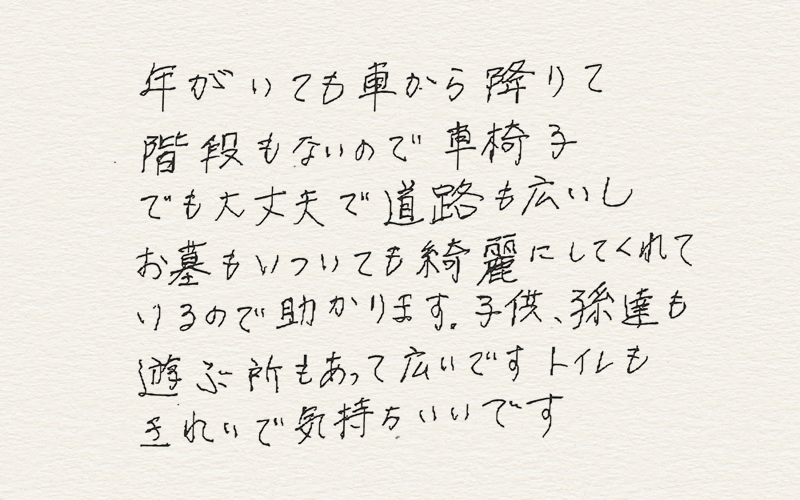 年がいても車から降りて
階段もないので車椅子
でも大丈夫で道路も広いし
お墓もいついても綺麗にしてくれて
いるので助かります。子供、孫達も
遊ぶ所もあって広いですトイレも
きれいで気持ちいいです